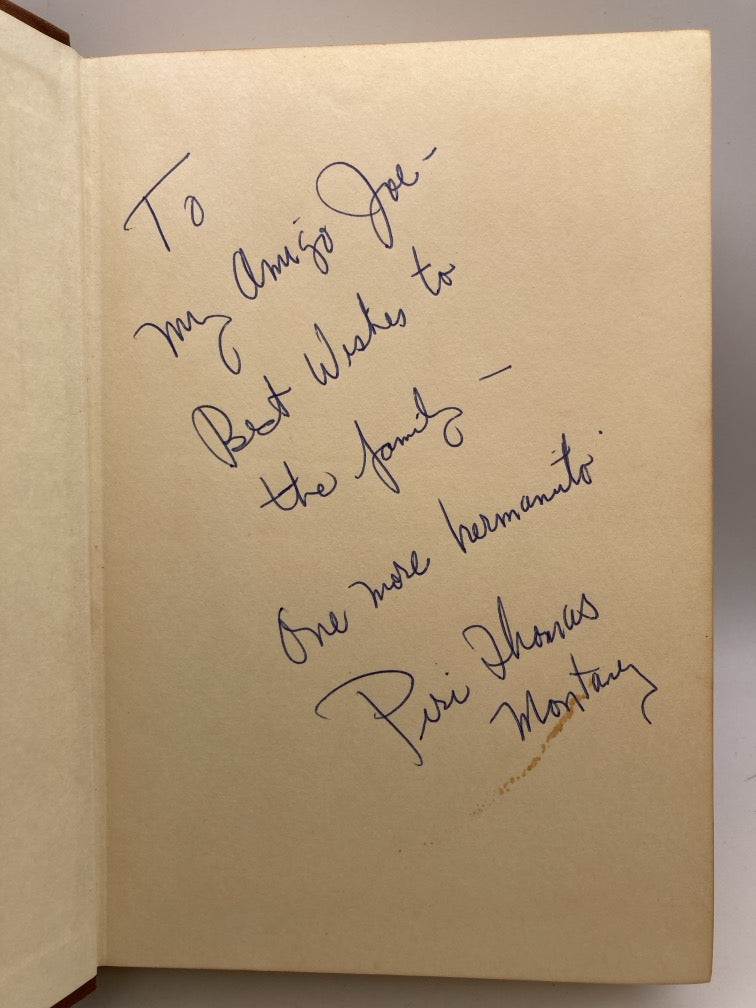 To
my Amigo Joe-
Best Wishes to
the family -
One more hermanito.
Piri Thomas
Montanez